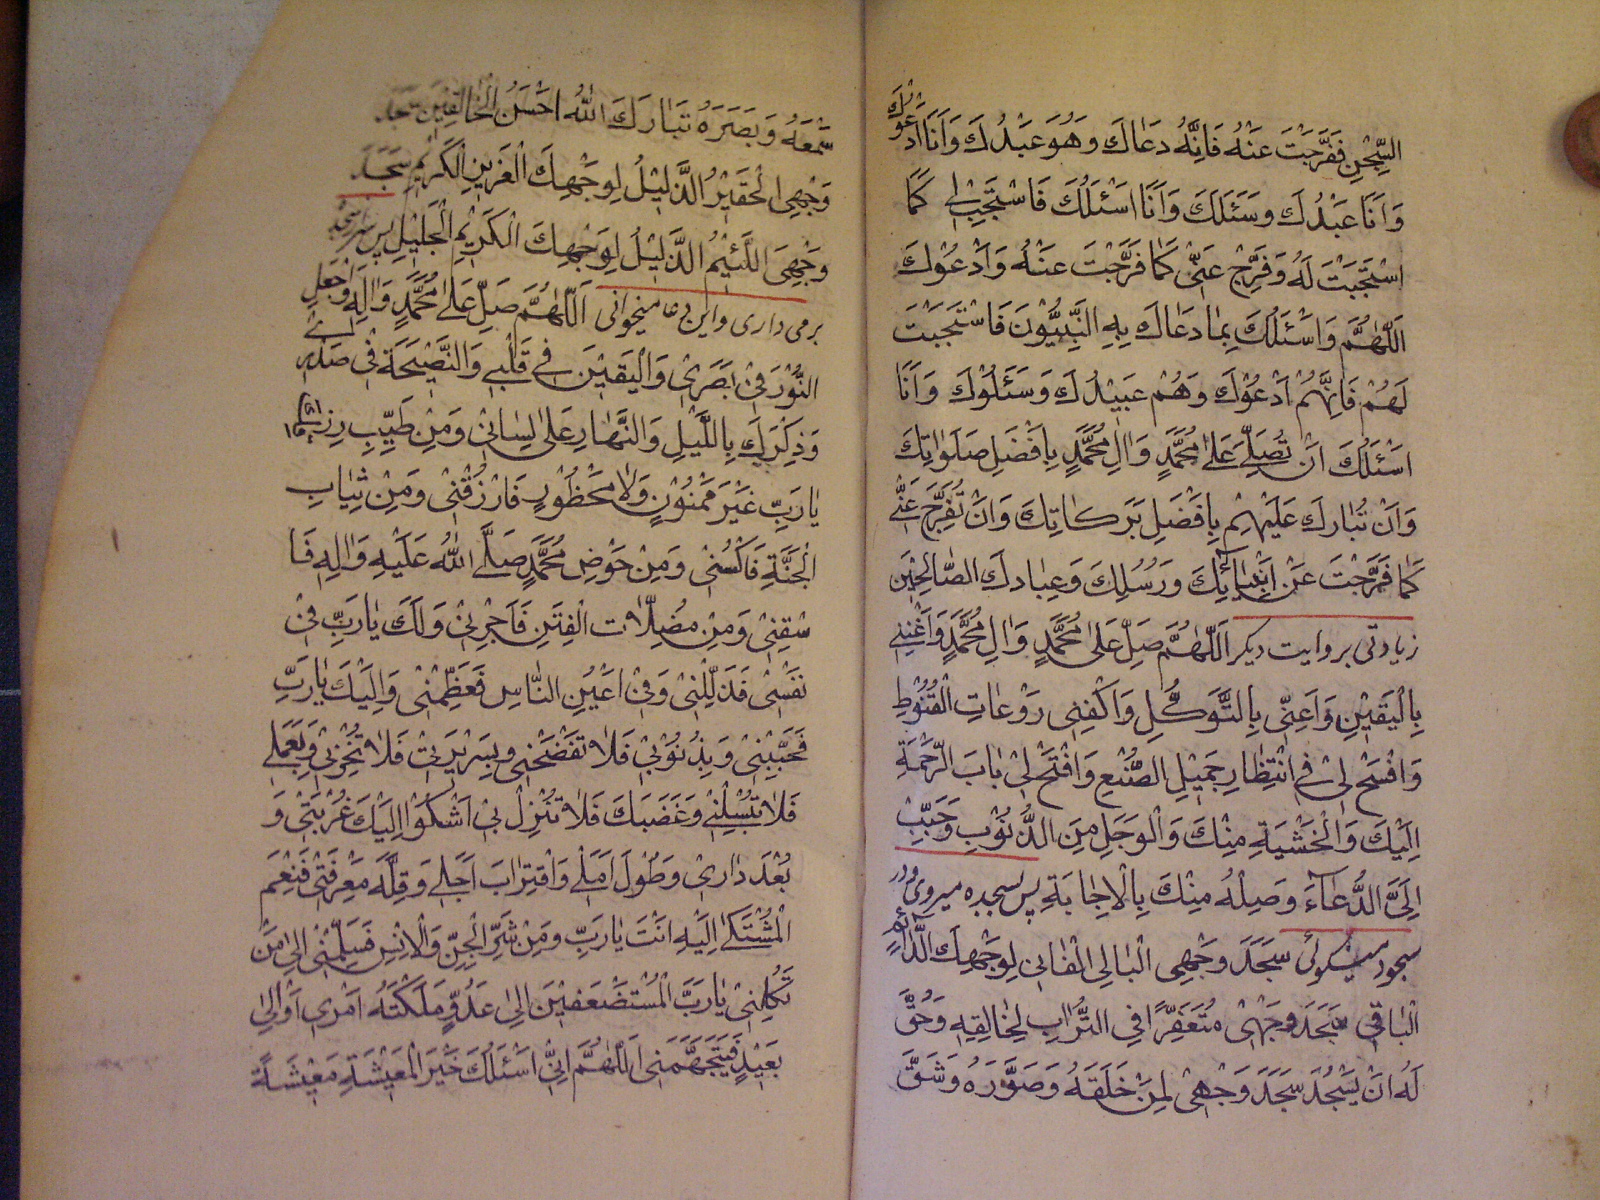 السِّجْنِ فَفَرَّجْتَ عَنْهُ فَاِنَّهُ دَعٰاكَ وَهُوَ عَبْدُكَ وَاَنَا اَدْعُوكَ
وَاَنَا عَبْدُكَ وَسَئَلَكَ وَاَنَا اَسْئَلُكَ فَاسْتَجِبْ لِى كَمَا
اسْتَجَبْتَ لَهُ وَفَرِّجْ عَنّى كَمٰا فَرَّجْتَ عَنْهُ وَاَدْعُوْكَ
اَللّٰهُمَّ وَاَسْئَلُكَ بِمٰا دَعٰاكَ بِهِ النَّبِيُّونَ فَاسْتَجَبْتَ
لَهُمْ فَاِنَّهُمْ اَدْعُوْكَ وَهُمْ عَبِيْدُكَ وَسَئَلُوْكَ وَاَنَا
اَسْئَلُكَ اَنْ تُصَلِّىَ عَلىٰ مُحَمَّدٍ وَاٰلِ مُحَمَّدٍ بِاَفْضَلِ صَلَوٰاتِكَ
وَاَنْ تُبٰارِكَ عَلَيْهِمْ بِاَفْضَلِ بَرَكٰاتِكَ وَاَنْ تُفَرِّجَ عَنّى
كَمٰا فَرَّجْتَ عَنْ اَنْبِيٰآئِكَ وَرُسُلِكَ وَعِبٰادِكَ الصّٰالِحِيْنَ
زيادتى بروايت ديكر اَللّٰهُمَّ صَلِّ عَلىٰ مُحَمَّدٍ وَاٰلِ مُحَمَّدٍ وَاَغْنِنِى
بِالْيَقِيْنِ وَاَعِنّى بِالتَّوَكُّلِ وَاكْفِنِى رَوْعٰاتِ الْقُنُوْطِ
وَافْسَحْ لِىْ فِى انْتِظٰارِ جَمِيْلِ الصُّنْعِ وَافْتَحْ لِىْ بٰابَ الرَّحْمَةِ
اِلَيْكَ وَالْخَشْيَةِ مِنْكَ وَالْوَجَلِ مِنَ الذُّنُوْبِ وَحَبِّبْ
اِلَىَّ الدُّعٰآءَ وَصِلْهُ مِنْكَ بِالْاِجٰابَةِ پس بسجده ميروى ودر
سجود ميكوئى سَجَدَ وَجْهِى الْبٰالِى الْفٰانِى لِوَجْهِكَ الدّٰآئِمِ
الْبٰاقِى سَجَدَ وَجْهِىْ مُتَعَفِّرًا فِى التُّرٰابِ لِخٰالِقِهِ وَحُقَّ
لَهُ اَنْ يَسْجُدَ سَجَدَ وَجْهِىْ لِمَنْ خَلَقَهُ وَصَوَّرَهُ وَشَقَّ
سَمْعَهُ وَبَصَرَهُ تَبٰارَكَ اللهُ اَحْسَنُ الْخٰالِقِيْنَ سَجَدَ
وَجْهِىَ الْحَقِيْرُ الذَّلِيْلُ لِوَجْهِكَ الْعَزِيْزِ الْكَرِيْمِ سَجَدَ
وَجْهِىَ اللَّئِيْمُ الذَّلِيْلُ لِوَجْهِكَ الْكَرِيْمِ الْجَلِيْلِ پس سر
برمى دارى واين دعا ميخوانى اَللّٰهُمَّ صَلِّ عَلىٰ مُحَمَّدٍ وَاٰلِهِ وَاجْعَلِ
النُّوْرَ فِىْ بَصَرِىْ وَالْيَقِيْنَ فِى قَلْبِى وَالنَّصِيْحَةَ فِىْ صَدْرِى
وَذِكْرَكَ بِاللَّيْلِ وَالنَّهٰارِ عَلىٰ لِسٰانِىْ وَمِنْ طَيِّبِ رِزْقِكَ
يٰا رَبِّ غَيْرَ مَمْنُوْنٍ وَلٰا مَحْظُوْرٍ فَارْزُقْنِىْ وَمِنْ ثِيٰابِ
الْجَنَّةِ فَاكْسُنِىْ وَمِنْ حَوْضِ مُحَمَّدٍ صَلَّى اللهُ عَلَيْهِ وَاٰلِهِ فَا
سْقِنِىْ وَمِنْ مُضِلّٰاتِ الْفِتَنِ فَاَجِرْنِىْ وَلَكَ يٰا رَبِّ فِىْ
نَفْسِىْ فَذَلِّلْنِىْ وَفِىْ اَعْيُنِ النّٰاسِ فَعَظِّمْنِىْ وَاِلَيْكَ يٰا رَبِّ
فَحَبِّبْنِىْ وَبِذُنُوْبِىْ فَلٰا تَفْضَحْنِى وَبِسَرِيْرَتِىْ فَلٰا تُخْزِنِىْ وَبِعَمَلِى
فَلٰا تُبْسِلْنِىْ وَغَضَبَكَ فَلٰا تُنْزِلْ بِىْ اَشْكُوْا اِلَيْكَ غُرْبَتِىْ وَ
بُعْدَ دٰارِىْ وَطُوْلَ اَمَلِى وَاقْتِرٰابَ اَجَلِى وَقِلَّةَ مَعْرِفَتِىْ فَنِعْمَ
الْمُشْتَكىٰ اِلَيْهِ اَنْتَ يٰا رَبِّ وَمِنْ شَرِّ الْجِنِّ وَالْاِنْسِ فَسَلِّمْنِىْ اِلىٰ مَنْ
تَكِلُنِىْ يٰا رَبَّ الْمُسْتَضْعَفِيْنَ اِلىٰ عَدُوٍّ مَلَّكْتَهُ اَمْرِى اَوْ اِلىٰ
بَعِيْدٍ فَيَتَجَهَّمَنِى اَللّٰهُمَّ اِنِّىْ اَسْئَلُكَ خَيْرَ الْمَعِيْشَةِ مَعِيْشَةً